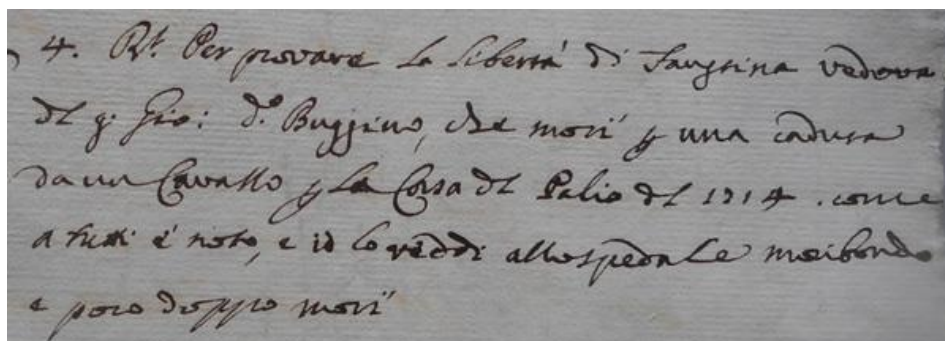 4. Rt. Per provare la libertà di Faustina vedova
del q. Gio: d.o Buggino, che morì p una caduta
da un Cavallo p la Corsa del Palio del 1714. come
a tutti è noto, e io lo veddi allo spedale moribondo
e poco doppo morì